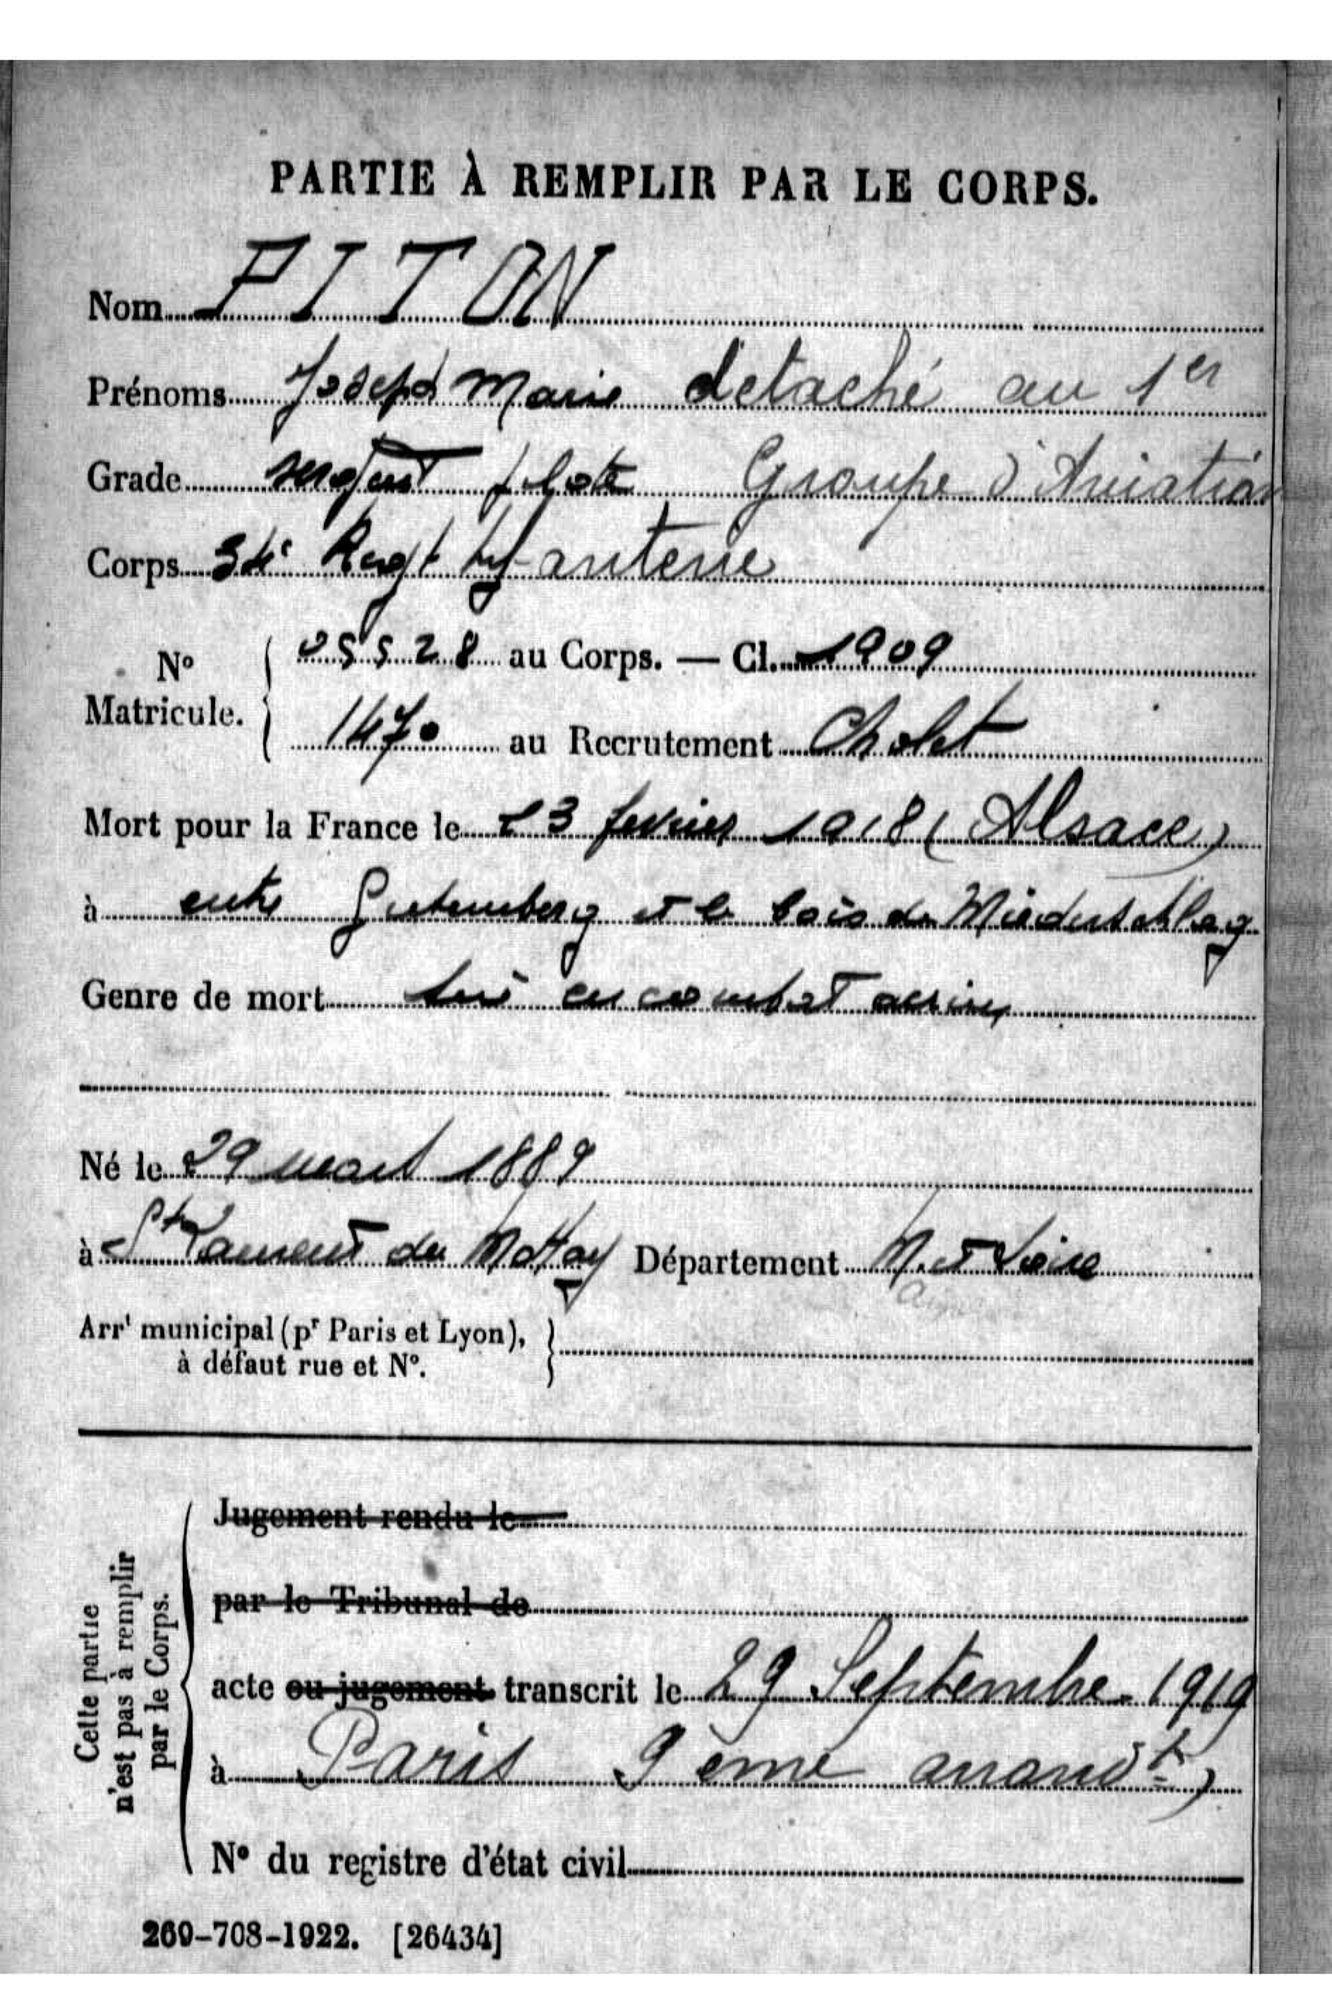 PARTIE À REMPLIR PAR LE CORPS.
Nom PITON
Prénoms Joseph Marie détaché au 1er
Grade sergent pilote Groupe d'Aviation
Corps 34e Regt Infanterie
No Matricule. 05528 au Corps. — Cl. 1909
1470 au Recrutement Cholet
Mort pour la France le 23 fevrier 1918 (Alsace)
à entre et le bois de
Genre de mort tué en combat aerien
Né le 29 mars 1889
à St Laurent du Mottay Département M. et Loire
Arrt municipal (pr Paris et Lyon),
à défaut rue et No.
Cette partie n'est pas à remplir par le Corps.
Jugement rendu le
par le Tribunal de
acte ou jugement transcrit le 29 Septembre 1919
à Paris 9ème arrondt)
No du registre d'état civil
260-708-1922. [26434]